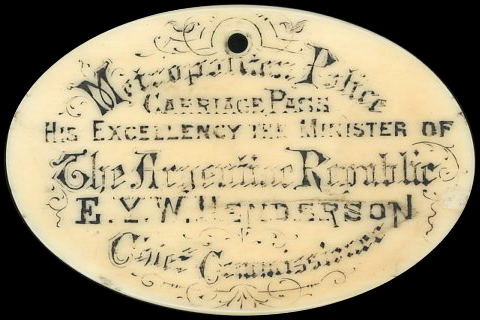 Metropolitan Police
Carriage Pass
His Excellency the Minister of
The Argentine Republic
E.Y.W. Henderson
Chief Commissioner